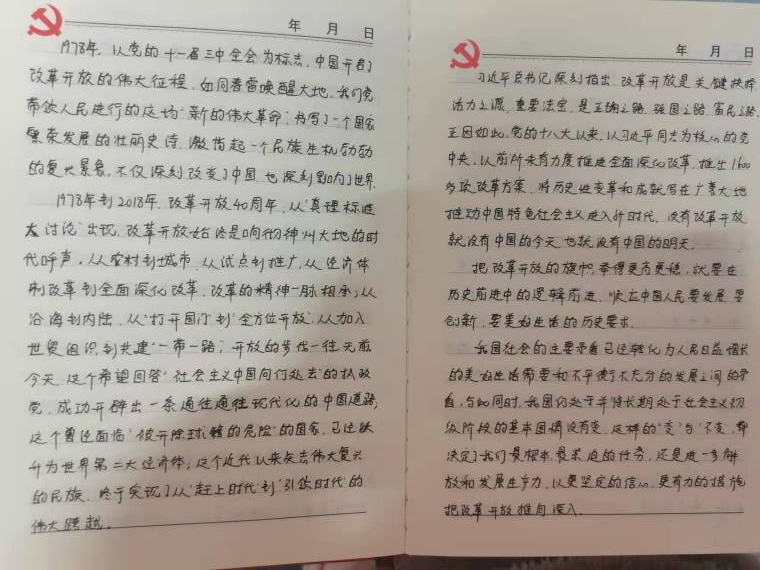 年 月 日
1978年，以党的十一届三中全会为标志，中国开启了
改革开放的伟大征程，如同春雷唤醒大地，我们党
带领人民进行的这场"新的伟大革命"，书写了一个国家
繁荣发展的壮丽史诗，激荡起一个民族生机勃勃
的复兴景象，不仅深刻改变了中国，也深刻影响了世界.
1978年到2018年，改革开放40周年，从"真理标准
大讨论"出现，改革开放始终是响彻神州大地的时
代呼声，从农村到城市，从试点到推广，从经济体
制改革到全面深化改革，改革的精神一脉相承；从
沿海到内陆，从"打开国门"到"全方位开放"，从加入
世贸组织到共建"一带一路"，开放的步伐一往无前
今天，这个希望回答"社会主义中国向何处去"的执政
党，成功开辟出一条通往通往现代化的中国道路，
这个曾经面临"被开除球籍的危险"的国家，已经跃
升为世界第二大经济体；这个近代以来矢志伟大复兴
的民族，终于实现了从"赶上时代"到"引领时代"的
伟大跨越.
年 月 日
习近平总书记深刻指出，改革开放是关键抉择
活力之源，重要法宝，是正确之路、强国之路、富民之路.
正因如此，党的十八大以来，以习近平同志为核心的党
中央，以前所未有力度推进全面深化改革，推出1600
多项改革方案，将历史性变革和成就写在广袤大地
推动中国特色社会主义进入新时代，没有改革开放
就没有中国的今天，也就没有中国的明天.
把改革开放的旗帜，举得更高更稳，就要在
历史前进中的逻辑前进，顺应中国人民要发展，要
创新，要美好生活的历史要求.
我国社会的主要矛盾已经转化为人民日益增长
的美好生活需要和不平衡不充分的发展之间的矛
盾，与此同时，我国仍处于并将长期处于社会主义初
级阶段的基本国情没有变，这样的"变"与"不变"，都
决定了我们最根本，最紧迫的任务，还是进一步解
放和发展生产力，以更坚定的信心，更有力的措施
把改革开放推向深入.